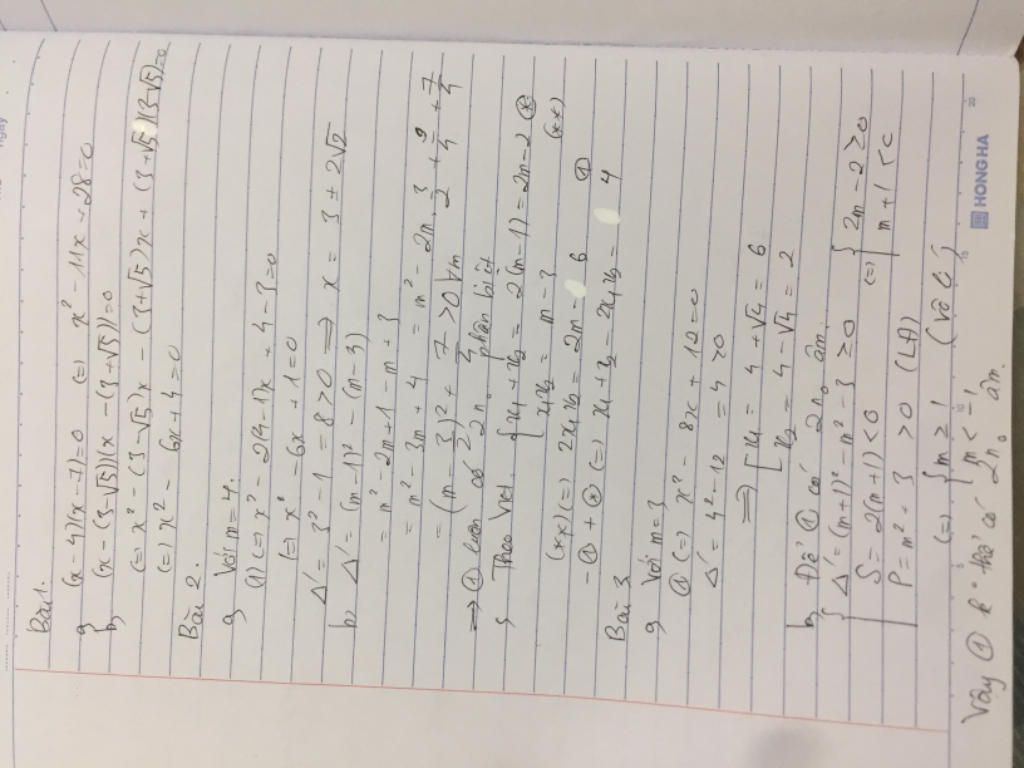 Bài 1.
a, (x-4)(x-7)=0 (=) x² - 11x + 28=0
b, (x-(3-√5))(x-(3+√5))=0
(=) x² - (3-√5)x - (3+√5)x + (3+√5)(3-√5)=0
(=) x² - 6x + 4 = 0
Bài 2.
a, Với m=4.
(1) (=) x² - 2(4-1)x + 4-3=0
(=) x² - 6x + 1 = 0
Δ' = 3² - 1 = 8 > 0 => x = 3 ± 2√2
b, Δ' = (m-1)² - (m-3)
= m² - 2m + 1 - m + 3
= m² - 3m + 4 = m² - 2m . 3/2 + 9/4 + 7/4
= (m - 3/2)² + 7/4 > 0 ∀m
=> ① luôn có 2 n₀ phân biệt
Theo Viet. { x₁ + x₂ = 2(m-1) = 2m-2 (*)
x₁x₂ = m-3 (**)
(**) (=) 2x₁x₂ = 2m - 6 ①
-① + (*) (=) x₁ + x₂ - 2x₁x₂ = 4
Bài 3
a, Với m=3
① (=) x² - 8x + 12=0
Δ' = 4² - 12 = 4 > 0
=> [ x₁ = 4 + √4 = 6
x₂ = 4 - √4 = 2
b, Để ① có 2 n₀ âm.
{ Δ' = (m+1)² - m² - 3 ≥ 0 (=) { 2m - 2 ≥ 0
S = 2(m+1) < 0 m + 1 < 0
P = m² + 3 > 0 (LĐ)
(=) { m ≥ 1 (Vô lí)
m < -1
Vậy ① k° thể có 2 n₀ âm.
HONG HA